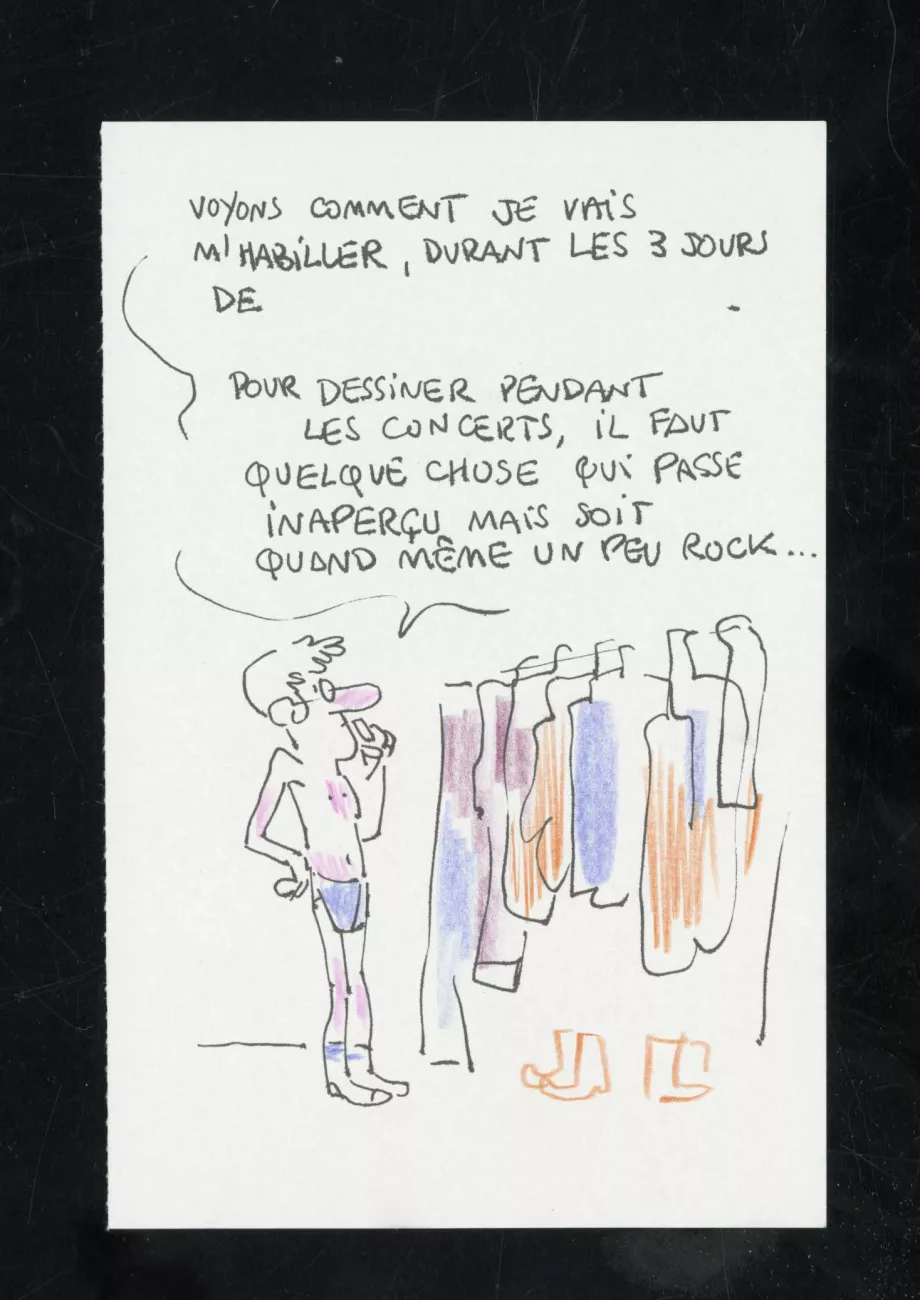 VOYONS COMMENT JE VAIS
M'HABILLER, DURANT LES 3 JOURS
DE .
POUR DESSINER PENDANT
LES CONCERTS, IL FAUT
QUELQUE CHOSE QUI PASSE
INAPERÇU MAIS SOIT
QUAND MÊME UN PEU ROCK...